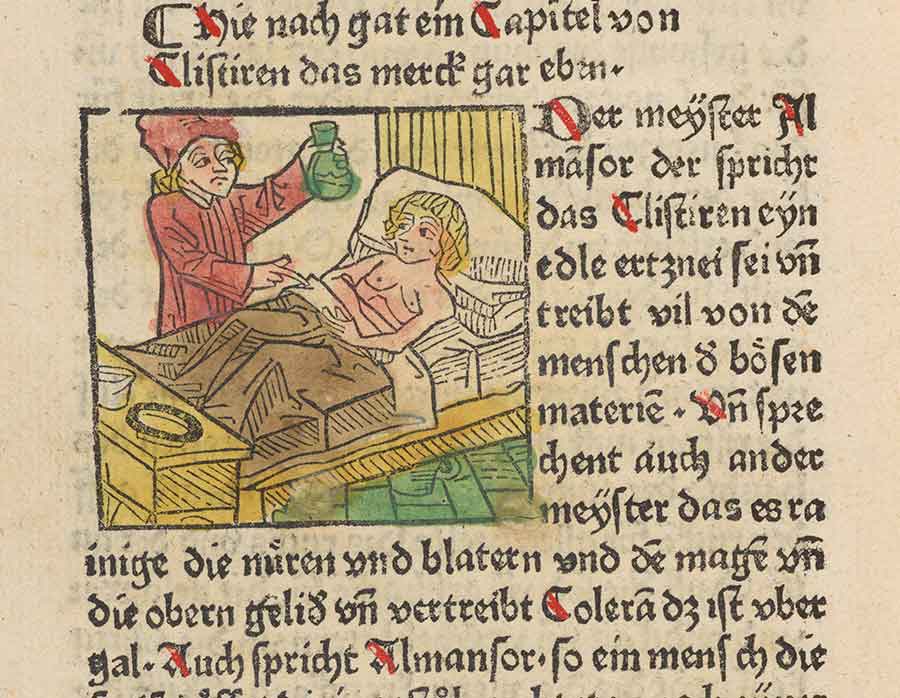 Hie nach gat ein Capitel von
Clistiren das merck gar eben.
Der meÿster Al
māsor der spricht
das Clistiren eyn
edle ertznei sei vñ
treibt vil von dē
menschen d̄ bo̊sen
materiē . Vñ spre
chent auch ander
meÿster das es ra
inige die nu̇ren vnd blatern vnd dē magē vñ
die obern gelid̄ vñ vertreibt Colerā dz ist vber
gal. Auch spricht Almansor. so ein mensch die